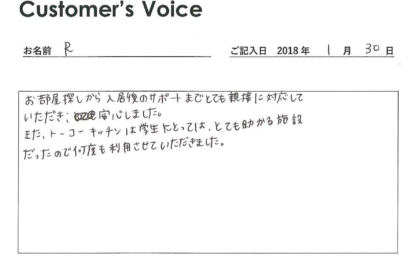 Customer's Voice
お名前 R ご記入日 2018 年 1 月 30 日
お部屋探しから入居後のサポートまでとても親接に対応して
いただき、安心しました。
また、トーコーキッチンは学生にとっては、とても助かる施設
だったので何度も利用させていただきました。